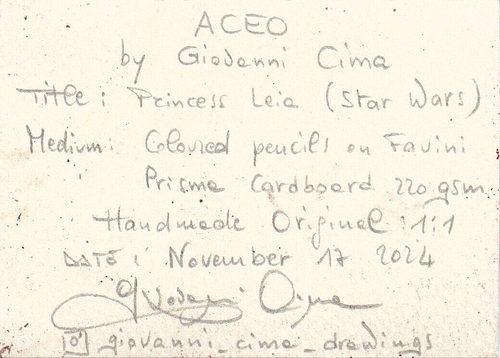 ACEO
by Giovanni Cima
Title: Princess Leia (Star Wars)
Medium: Coloured pencils on Favini
Prisma Cardboard 220 gsm
Handmade Original 1:1
DATE: November 17 2024
Giovanni Cima
giovanni_cima_drawings